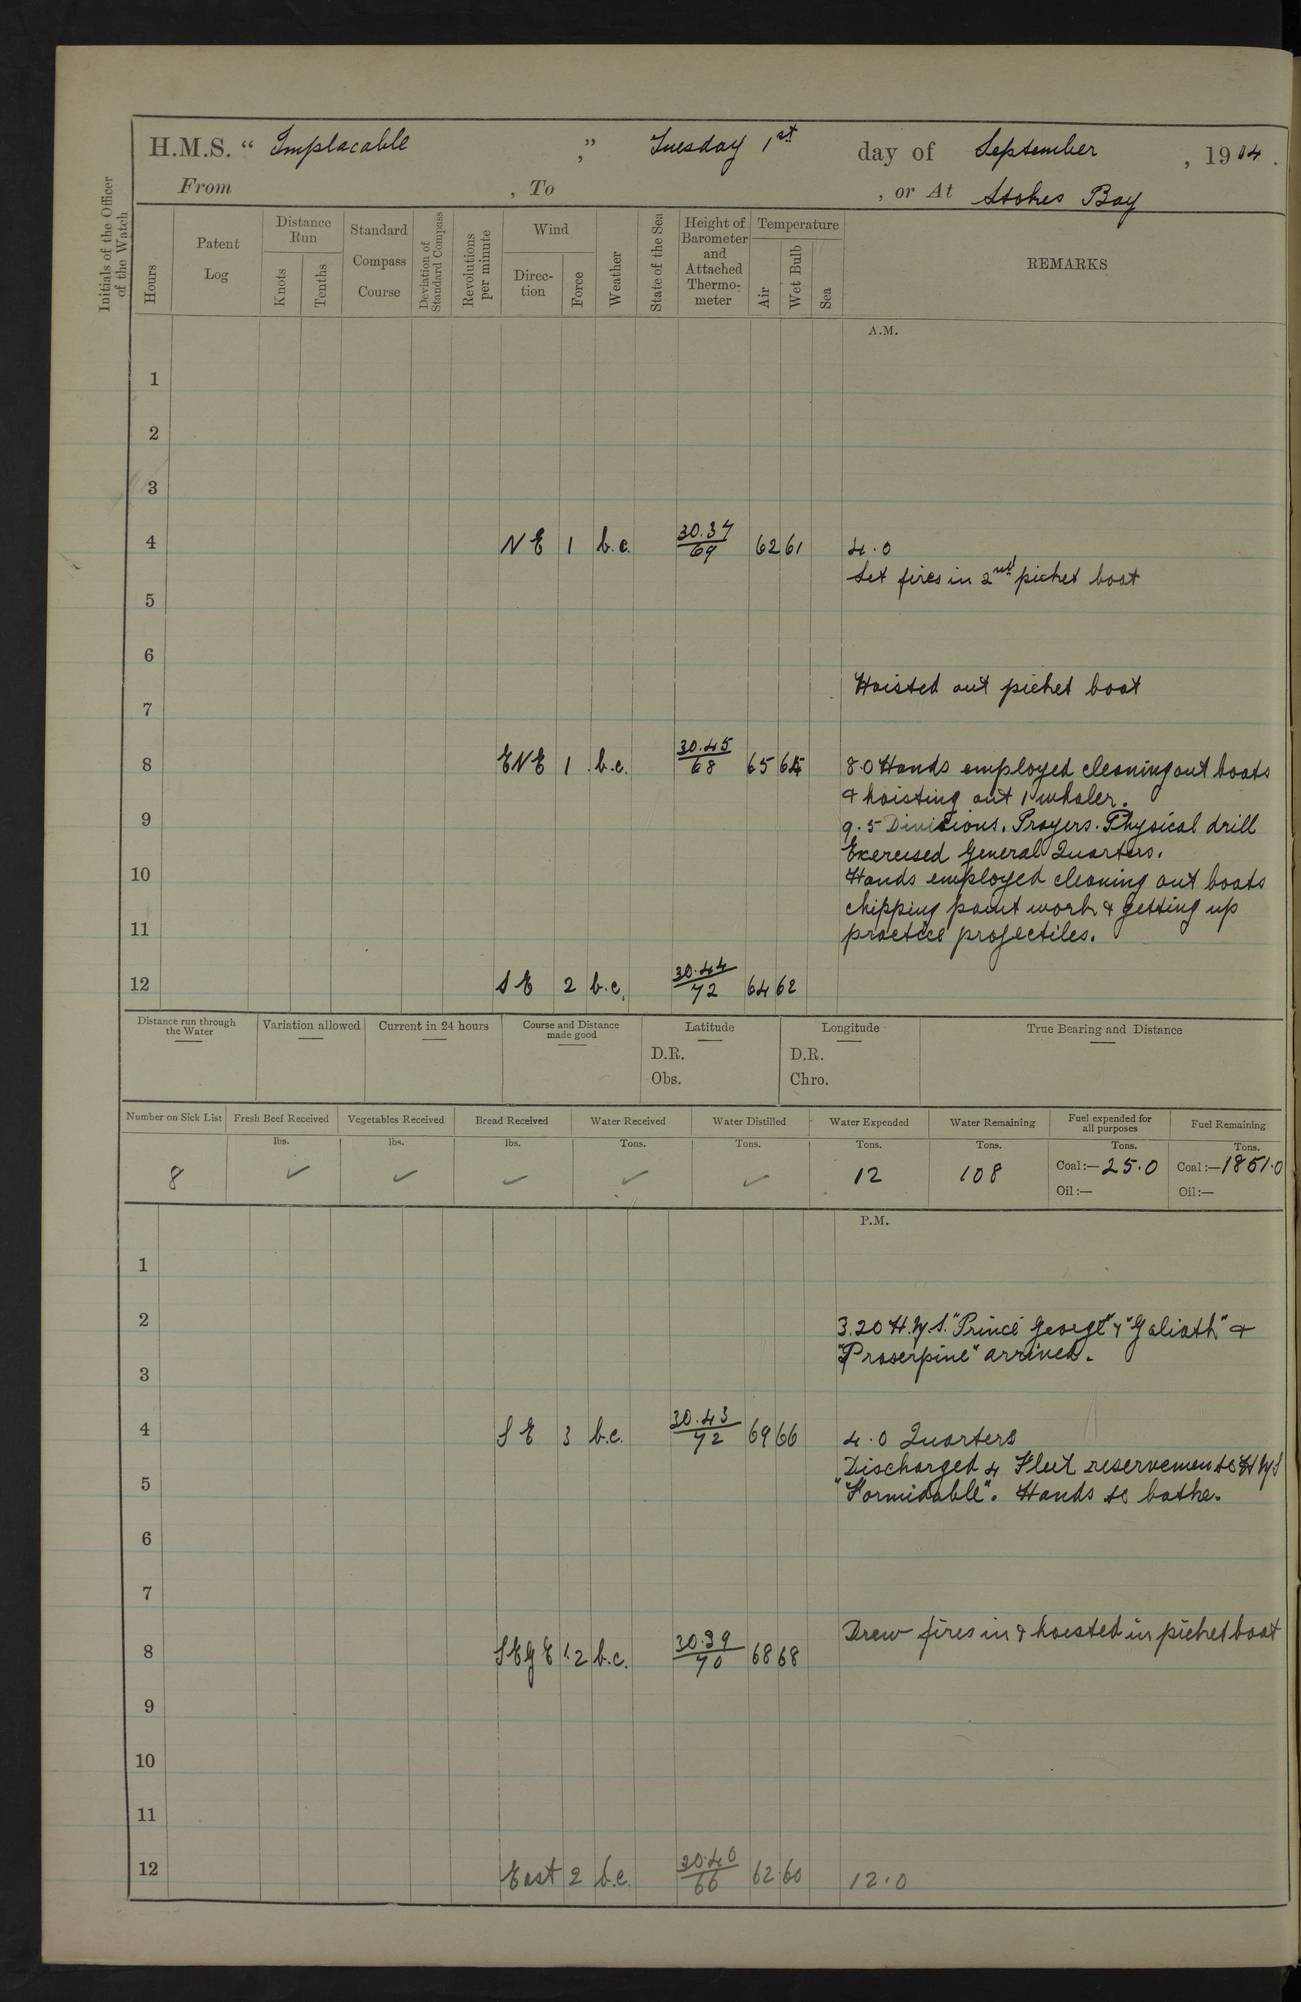 H.M.S. “ Implacable ,” Tuesday 1st day of September , 1914 .
From , To , or At Stokes Bay
Initials of the Officer of the Watch
Hours
Patent Log
Distance Run
Knots
Tenths
Standard Compass Course
Deviation of Standard Compass
Revolutions per minute
Wind
Direc-tion
Force
Weather
State of the Sea
Height of Barometer and Attached Thermo-meter
Temperature
Air
Wet Bulb
Sea
REMARKS
A.M.
1
2
3
4 NE 1 b.c. 30.37/69 62 61 4.0
Set fires in 2nd picket boat
5
6
Hoisted out picket boat
7
8 ENE 1 b.c. 30.45/68 65 64 8.0 Hands employed cleaning out boats
& hoisting out 1 whaler.
9 9.5 Divisions. Prayers. Physical drill
Exercised General Quarters.
10 Hands employed cleaning out boats
chipping paint work & getting up
11 practice projectiles.
12 SE 2 b.c. 30.44/72 64 62
Distance run through the Water
Variation allowed
Current in 24 hours
Course and Distance made good
Latitude
D.R.
Obs.
Longitude
D.R.
Chro.
True Bearing and Distance
Number on Sick List
Fresh Beef Received
Vegetables Received
Bread Received
Water Received
Water Distilled
Water Expended
Water Remaining
Fuel expended for all purposes
Fuel Remaining
lbs. lbs. lbs. Tons. Tons. Tons. Tons. Tons. Tons.
8 ✓ ✓ ✓ ✓ ✓ 12 108 Coal:— 25.0 Coal:— 1851.0
Oil:— Oil:—
P.M.
1
2 3.20 H.M.S. "Prince George" & "Goliath" &
"Proserpine" arrived.
3
4 SE 3 b.c. 30.43/72 69 66 4.0 Quarters
Discharged 4 Fleet reservemen to HMS
5 "Formidable". Hands to bathe.
6
7
Drew fires in & hoisted in picket boat
8 SE 1.2 b.c. 30.39/70 68 68
9
10
11
12 East 2 b.c. 30.40/66 62 60 12.0